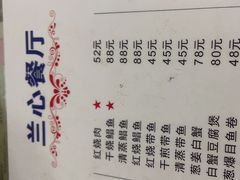 兰心餐厅
红烧肉 52元
★ 干烧鲳鱼 88元
★ 清蒸鲳鱼 88元
红烧鲳鱼 88元
红烧带鱼 45元
干煎带鱼 45元
清蒸带鱼 45元
葱姜白蟹 78元
白蟹豆腐煲 80元
葱爆目鱼卷 48元